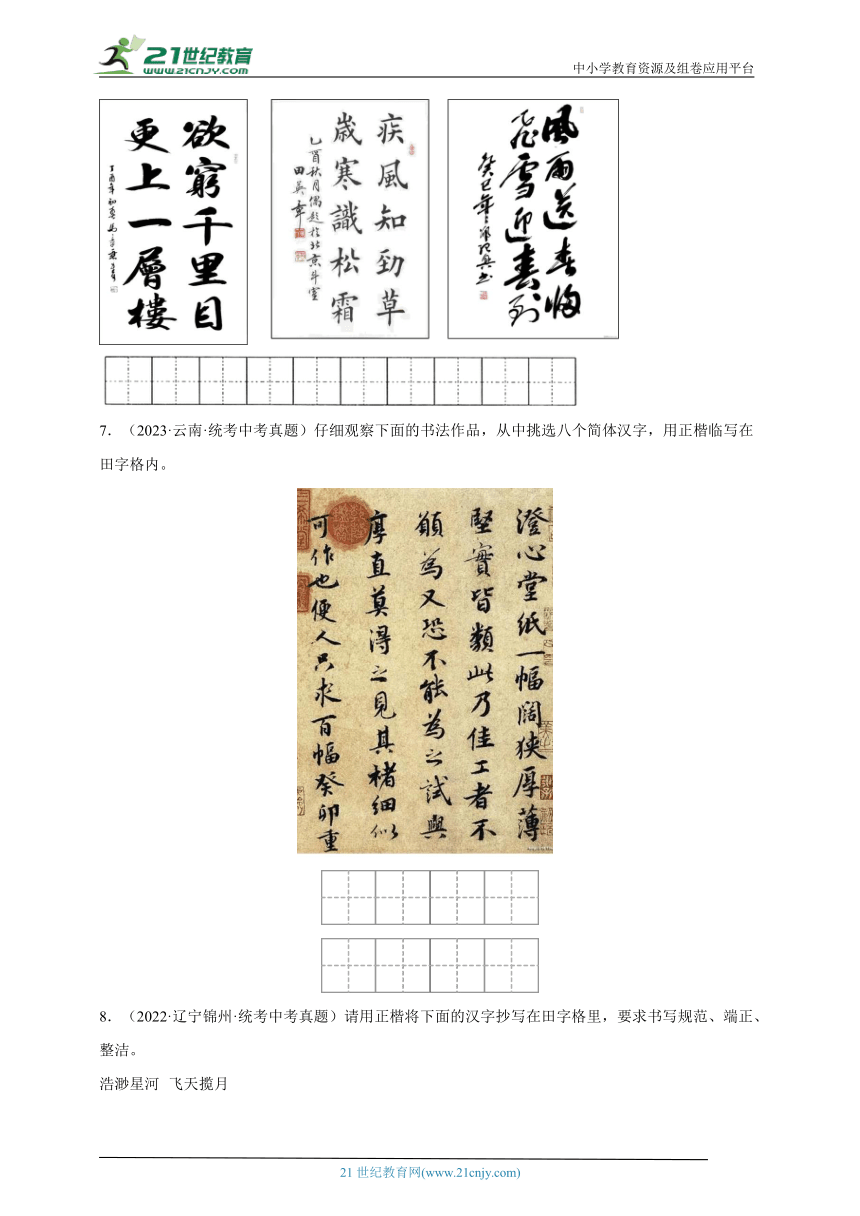 21世纪教育
WWW.21CNJY.COM
中小学教育资源及组卷应用平台
欲窮千里目
更上一層樓
疾風知勁草
歲寒識松霜
乙酉秋月偶题於北京斗室
風雨送春归
飛雪迎春到
7．（2023·云南·统考中考真题）仔细观察下面的书法作品，从中挑选八个简体汉字，用正楷临写在
田字格内。
澄心堂纸一幅闊狭厚薄
堅實皆類此乃佳工者不
願為又恐不能為之試與
厚直莫得之見其楮细似
可作也便人只求百幅癸卯重
8．（2022·辽宁锦州·统考中考真题）请用正楷将下面的汉字抄写在田字格里，要求书写规范、端正、
整洁。
浩渺星河 飞天揽月
21世纪教育网(www.21cnjy.com)